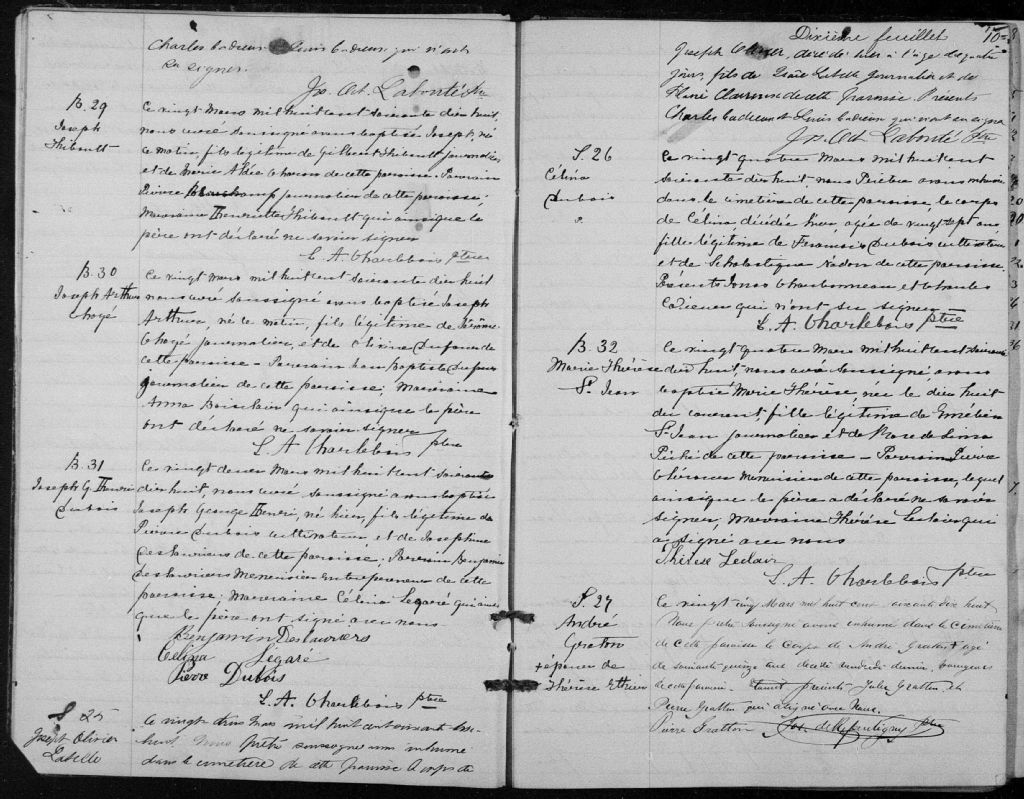 Charles Cadieux Louis Cadieux qui n'ont
su signer.
Jos. Oct. Labonté Ptre
B. 29
Joseph
Thibault
Ce vingt Mars mil huit cent soixante dix huit,
nous curé soussigné avons baptisé Joseph, né
ce matin, fils légitime de Gilbert Thibault journalier,
et de Marie de cette paroisse. Parrain
Pierre journalier de cette paroisse;
Marraine Henriette Thibault qui ainsi que le
père ont déclaré ne savoir signer
L. A. Charlebois ptre
B. 30
Joseph Arthur
Ce vingt Mars mil huit cent soixante dix huit
nous curé soussigné avons baptisé Joseph
Arthur, né ce matin, fils légitime de Jérôme
journalier, et de de
cette paroisse - Parrain Jean Baptiste
journalier de cette paroisse; Marraine
Anna qui ainsi que le père
ont déclaré ne savoir signer
L. A. Charlebois ptre
B. 31
Joseph G. Henri
Dubois
Ce vingt deux Mars mil huit cent soixante
dix huit, nous curé soussigné avons baptisé
Joseph George Henri, né hier, fils légitime de
Pierre Dubois cultivateur et de Josephine
Deslauriers de cette paroisse; Parrain Benjamin
Deslauriers Menuisier Entrepreneur de cette
paroisse; Marraine Célina Legaré qui ainsi
que le père ont signé avec nous
Benjamin Deslauriers
Celina Légaré
Pierre Dubois
L. A. Charlebois ptre
S. 25
Joseph Olivier
Labelle
Ce vingt trois Mars mil huit cent soixante dix
huit, nous Prêtre soussigné avons inhumé
dans le cimetière de cette Paroisse le corps de
Dixième feuillet
10
Joseph Olivier, décédé hier à l'âge de quatre
jours, fils de Labelle Journalier et de
de cette Paroisse. Présents
Charles Cadieux et Louis Cadieux qui n'ont su signer
Jos. Oct. Labonté Ptre
S. 26
Célina
Dubois
Ce vingt quatre Mars mil huit cent
soixante dix huit, nous Prêtre avons inhumé
dans le cimetière de cette paroisse, le corps
de Célina décédée hier, agée de vingt sept ans,
fille légitime de Francois Dubois cultivateur
et de Scholastique de cette paroisse.
Présents Charbonneau et Charles
Cadieux qui n'ont su signer
L. A. Charlebois ptre
B. 32
Marie Thérèse
St. Jean
Ce vingt quatre Mars mil huit cent soixante
dix huit, nous curé soussigné avons
baptisé Marie Thérèse, née le dix huit
du courant, fille légitime de
St. Jean journalier et de Rose de Lima
de cette paroisse - Parrain Pierre
Menuisier de cette paroisse, lequel
ainsi que le père a déclaré ne savoir
signer, Marraine Thérèse Leclair qui
a signé avec nous
Thérèse Leclair
L. A. Charlebois ptre
S. 27
André
Gratton
+ époux de
Thérèse Ethier
Ce vingt cinq Mars mil huit cent soixante dix huit
Nous Prêtre soussigné avons inhumé dans le cimetière
de cette paroisse le corps de André Gratton agé
de soixante quinze ans décédé vendredi dernier, bourgeois
de cette paroisse. présents Jules Gratton et
Pierre Gratton qui a signé avec Nous.
Pierre Gratton